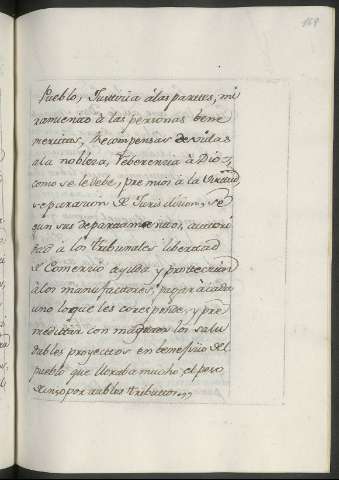 169
Pueblo, Justicia àlas partes, mi
ramiento à las personas bene
meritas, Recompensas devidas
ala nobleza, Reberencia à Dios,
como se le debe, premios à la Virtud,
separasion de Jurisdicion, se
gun sus departamentos, autori
dad à los tribunales libertad
de Comercio ayuda y proteccion
àlos manufactores, pagar àcada
uno lo que les coresponde, y pre
meditar con magores los salu
dables proyectos en benefisio del
pueblo que lloraba mucho el peso
de insoportables tributos,,